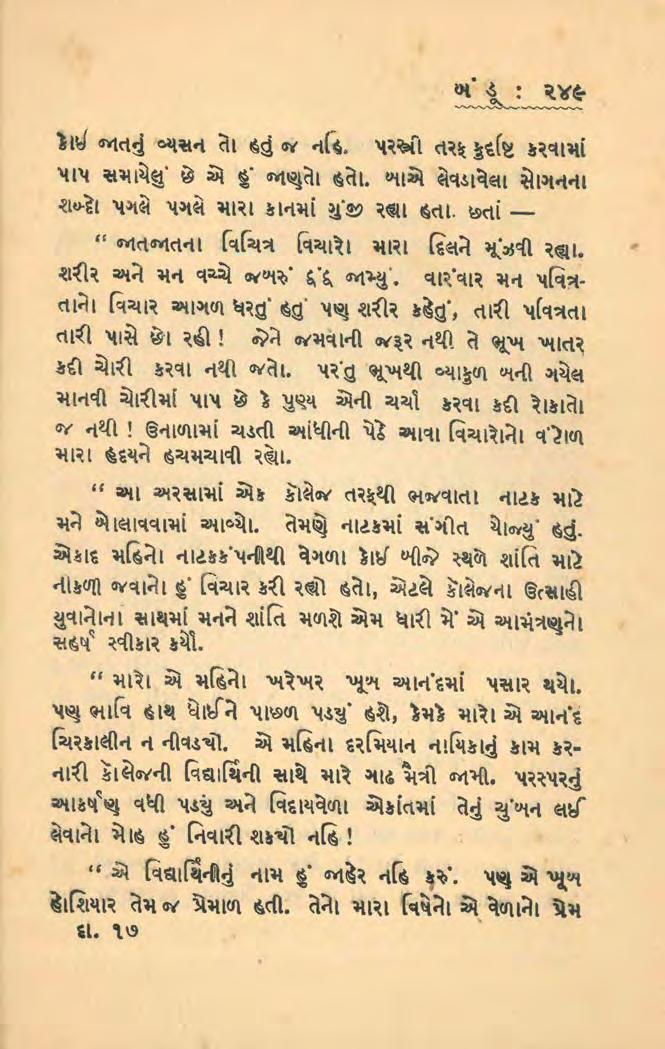 બંડૂ : ૨૪૯
કોઈ જાતનું વ્યસન તો હતું જ નહિ. પરસ્ત્રી તરફ કુદૃષ્ટિ કરવામાં
પાપ સમાયેલું છે એ હું જાણતો હતો. બાએ લેવડાવેલા સોગનના
શબ્દો પગલે પગલે મારા કાનમાં ગુંજી રહ્યા હતા. છતાં —
“ જાતજાતના વિચિત્ર વિચારો મારા દિલને મૂંઝવી રહ્યા.
શરીર અને મન વચ્ચે જબરું દ્વંદ્વ જામ્યું. વારંવાર મન પવિત્ર-
તાનો વિચાર આગળ ધરતું હતું પણ શરીર કહેતું, તારી પવિત્રતા
તારી પાસે છો રહી ! જેને જમવાની જરૂર નથી તે ભૂખ ખાતર
કદી ચોરી કરવા નથી જતો. પરંતુ ભૂખથી વ્યાકુળ બની ગયેલ
માનવી ચોરીમાં પાપ છે કે પુણ્ય એની ચર્ચા કરવા કદી રોકાતો
જ નથી ! ઉનાળામાં ચડતી આંધીની પેઠે આવા વિચારોનો વંટોળ
મારા હૃદયને હચમચાવી રહ્યો.
“ આ અરસામાં એક કૉલેજ તરફથી ભજવાતા નાટક માટે
મને બોલાવવામાં આવ્યો. તેમણે નાટકમાં સંગીત યોજ્યું હતું.
એકાદ મહિનો નાટકકંપનીથી વેગળા કોઈ બીજે સ્થળે શાંતિ માટે
નીકળી જવાનો હું વિચાર કરી રહ્યો હતો, એટલે કૉલેજના ઉત્સાહી
યુવાનોના સાથમાં મનને શાંતિ મળશે એમ ધારી મેં એ આમંત્રણનો
સહર્ષ સ્વીકાર કર્યો.
“ મારો એ મહિનો ખરેખર ખૂબ આનંદમાં પસાર થયો.
પણ ભાવિ હાથ ધોઈને પાછળ પડયું હશે, કેમકે મારો એ આનંદ
ચિરકાલીન ન નીવડયો. એ મહિના દરમિયાન નાયિકાનું કામ કર-
નારી કૉલેજની વિદ્યાર્થિની સાથે મારે ગાઢ મૈત્રી જામી. પરસ્પરનું
આકર્ષણ વધી પડયું અને વિદાયવેળા એકાંતમાં તેનું ચુંબન લઈ
લેવાનો મોહ હું નિવારી શકયો નહિ !
“ એ વિદ્યાર્થિનીનું નામ હું જાહેર નહિ કરું. પણ એ ખૂબ
હોશિયાર તેમ જ પ્રેમાળ હતી. તેનો મારા વિષેનો એ વેળાનો પ્રેમ
દા. ૧૭